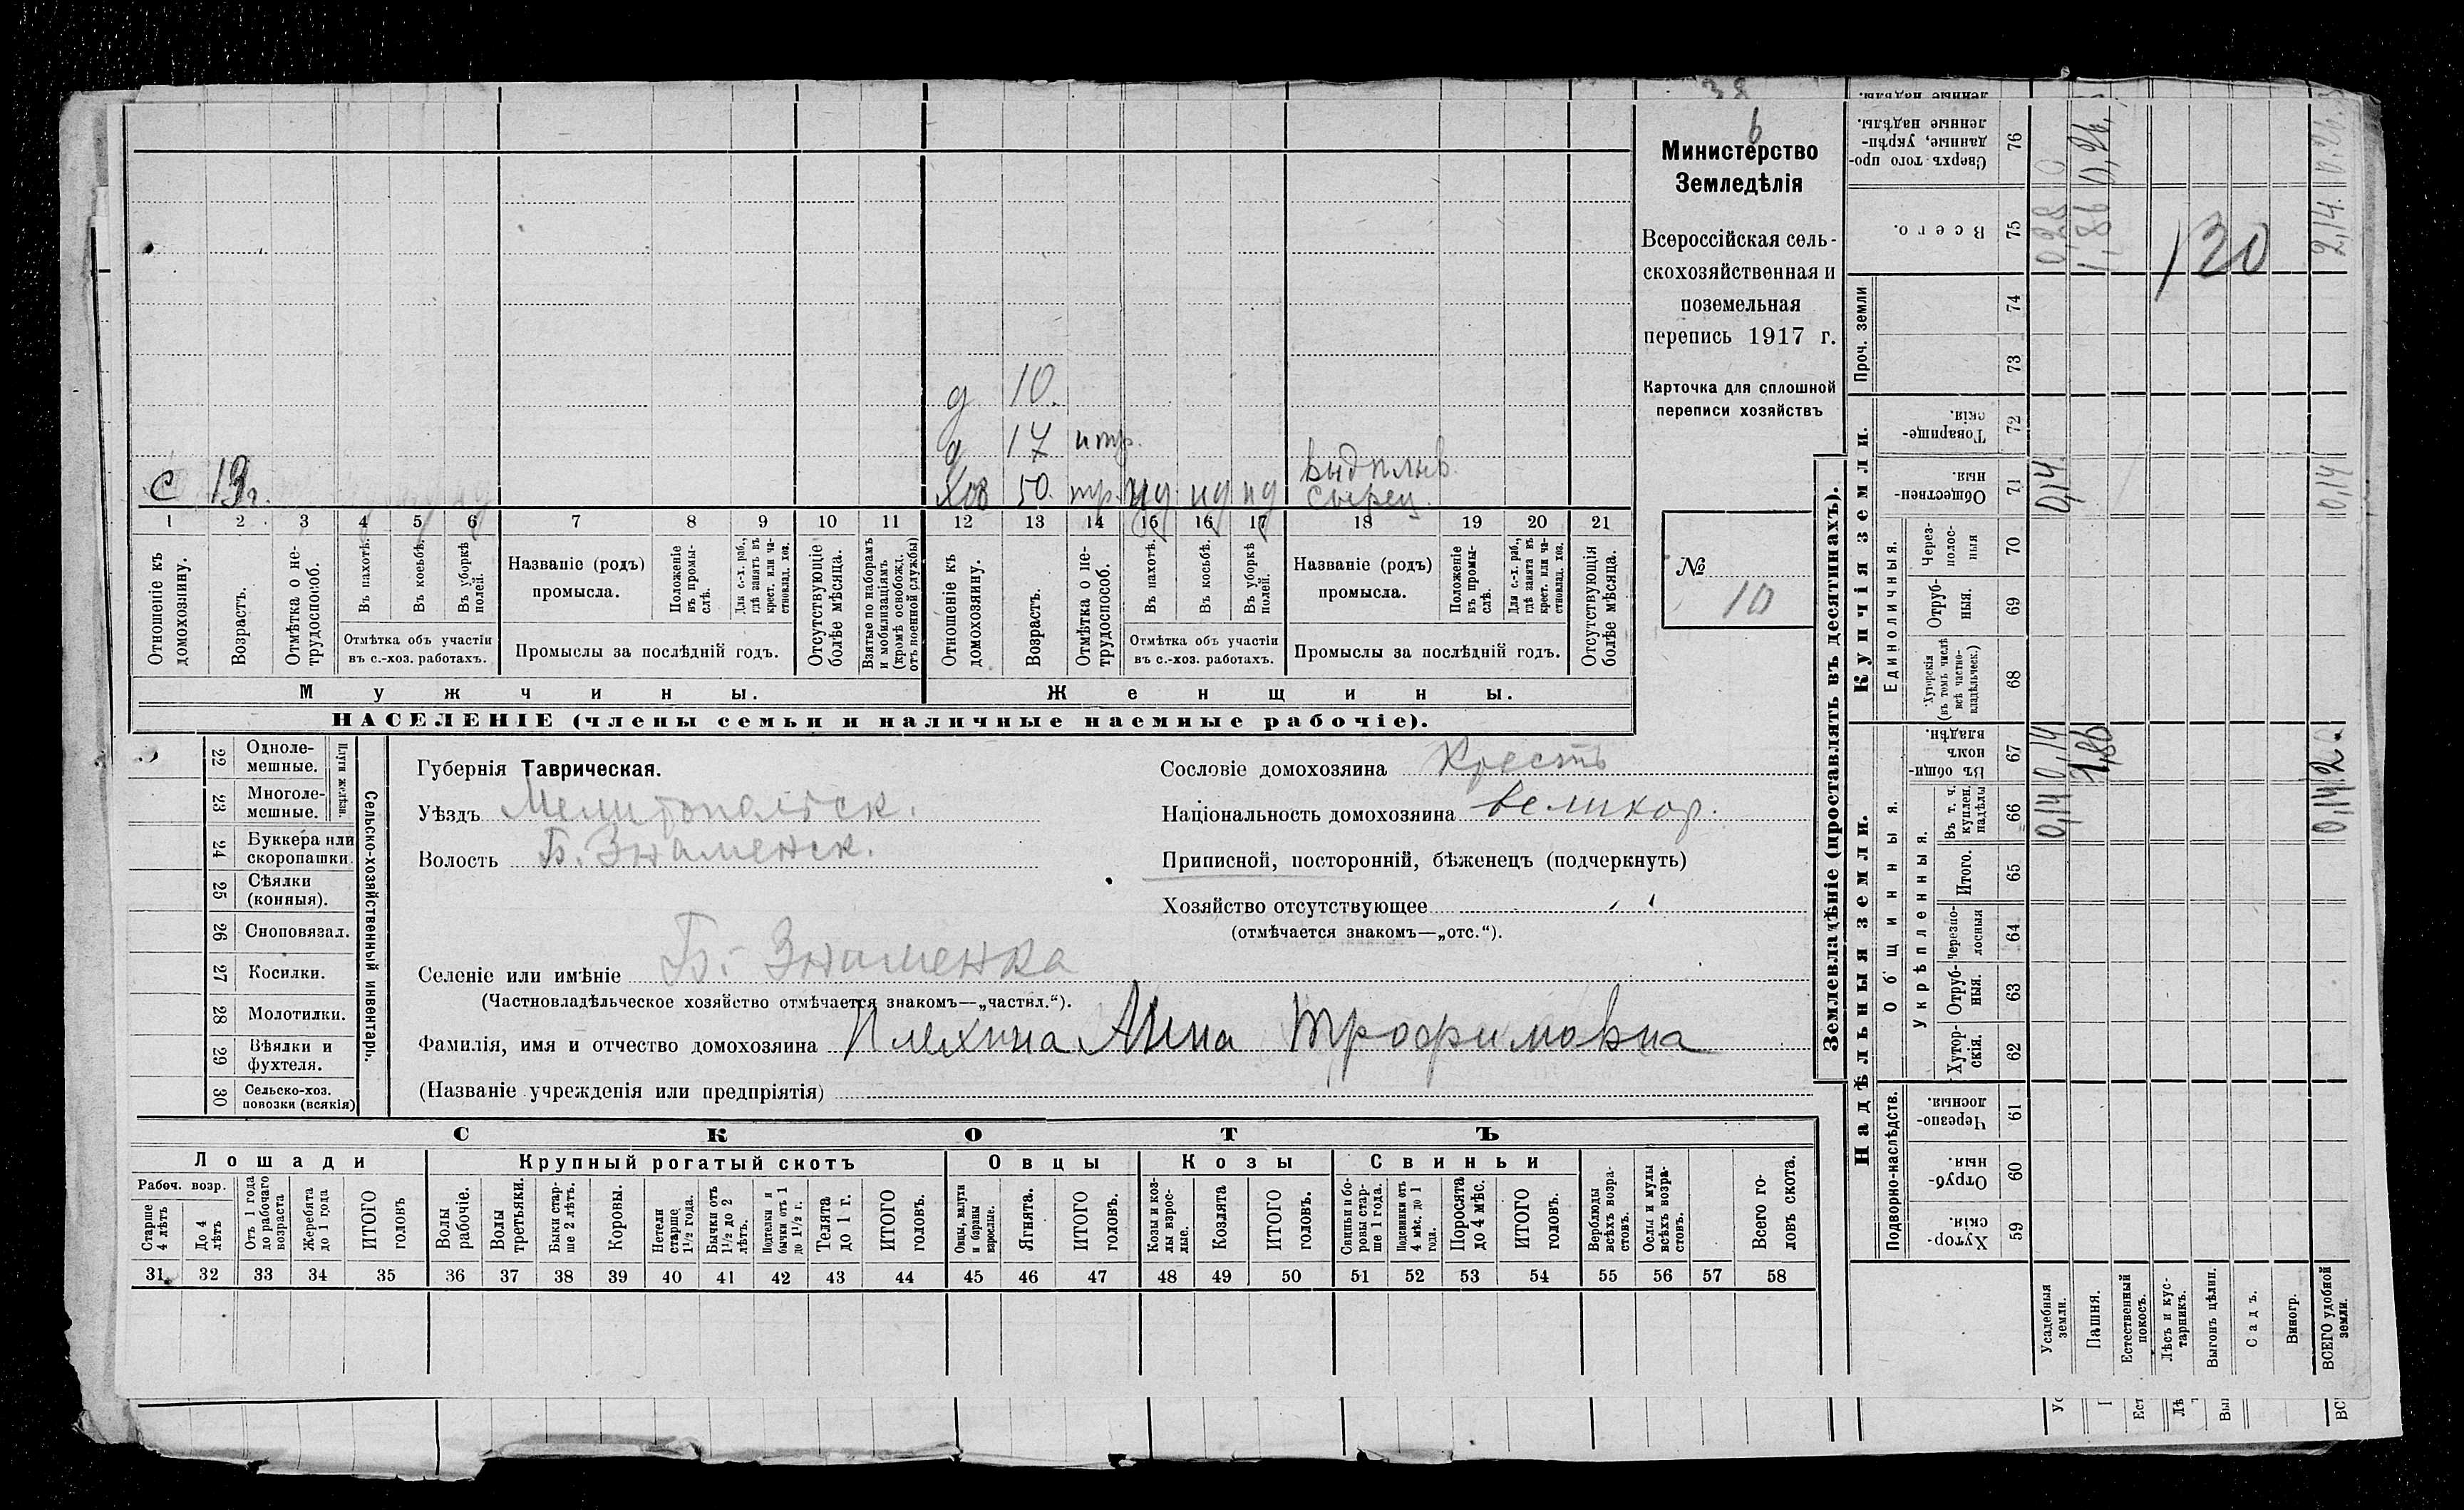 38
6
Министерство
Земледѣлія
Всероссійская сель-
скохозяйственная и
поземельная
перепись 1917 г.
Карточка для сплошной
переписи хозяйствъ
№
10
д 10.
д 17 нтр.
С 13 г.
Хоз 50. нтр. нд нд нд
1 2 3 4 5 6 7 8 9 10 11 12 13 14 15 16 17 18 19 20 21
Отношеніе къ домохозяину.
Возрастъ.
Отмѣтка о не-трудоспособ.
Въ пахотѣ.
Въ косьбѣ.
Въ уборкѣ полей.
Отмѣтка объ участіи въ с.-хоз. работахъ.
Названіе (родъ) промысла.
Положеніе въ промы-слѣ.
Для с.-х. раб., гдѣ занятъ въ крест. или ча-стновлад. хоз.
Промыслы за послѣдній годъ.
Отсутствующіе болѣе мѣсяца.
Взятые по наборамъ и мобилизаціямъ (кромѣ освобожд. отъ военной службы)
Отношеніе къ домохозяину.
Возрастъ.
Отмѣтка о не-трудоспособ.
Въ пахотѣ.
Въ косьбѣ.
Въ уборкѣ полей.
Отмѣтка объ участіи въ с.-хоз. работахъ.
Названіе (родъ) промысла.
Положеніе въ промы-слѣ.
Для с.-х. раб., гдѣ занята въ крест. или ча-стновлад. хоз.
Промыслы за послѣдній годъ.
Отсутствующія болѣе мѣсяца.
Мужчины.
Женщины.
НАСЕЛЕНІЕ (члены семьи и наличные наемные рабочіе).
22 Одноле-мешные.
23 Многоле-мешные.
Плуги желѣзн.
24 Буккера или скоропашки.
25 Сѣялки (конныя).
26 Сноповязал.
27 Косилки.
28 Молотилки.
29 Вѣялки и фухтеля.
30 Сельско-хоз. повозки (всякія)
Сельско-хозяйственный инвентарь.
Губернія Таврическая.
Уѣздъ Мелитопольск.
Волость Б. Знаменск.
Селеніе или имѣніе Б. Знаменка
(Частновладѣльческое хозяйство отмѣчается знакомъ—„частвл.“).
Фамилія, имя и отчество домохозяина Плехина Анна Трофимовна
(Названіе учрежденія или предпріятія)
Сословіе домохозяина Крестъ
Національность домохозяина великор.
Приписной, посторонній, бѣженецъ (подчеркнуть)
Хозяйство отсутствующее
(отмѣчается знакомъ—„отс.“).
СКОТЪ
Лошади
Рабоч. возр.
Старше 4 лѣтъ
До 4 лѣтъ
Отъ 1 года до рабочаго возраста
Жеребята до 1 года
ИТОГО головъ
Крупный рогатый скотъ
Волы рабочіе.
Волы третьяки.
Быки стар-ше 2 лѣтъ.
Коровы.
Нетели старше 1½ года.
Бычки отъ 1½ до 2 лѣтъ.
Подтелки и бычки отъ 1 до 1½ г.
Телята до 1 г.
ИТОГО головъ.
Овцы
Овцы, валухи и бараны взрослые.
Ягнята.
ИТОГО головъ.
Козы
Козы и коз-лы взрос-лые.
Козлята
ИТОГО головъ.
Свиньи
Свиньи и бо-ровы стар-ше 1 года.
Подсвинки отъ 4 мѣс. до 1 года.
Поросята до 4 мѣс.
ИТОГО головъ.
Верблюды всѣхъ возра-стовъ.
Ослы и мулы всѣхъ возра-стовъ.
Всего го-ловъ скота.
31 32 33 34 35 36 37 38 39 40 41 42 43 44 45 46 47 48 49 50 51 52 53 54 55 56 57 58
Землевладѣніе (проставлять въ десятинахъ).
Надѣльныя земли.
Подворно-наслѣдств.
Хутор-скія. 59
Отруб-ныя. 60
Черезпо-лосныя. 61
Общинныя.
Укрѣпленныя.
Хутор-скія. 62
Отруб-ныя. 63
Черезпо-лосныя 64
Итого. 65
Въ т. ч. куплен. надѣлы 66
Въ общин-номъ владѣн. 67
Купчія земли.
Единоличныя.
Хуторскія (въ томъ числѣ всѣ частно-владѣльческ.) 68
Отруб-ныя. 69
Через-полос-ныя 70
Обществен-ныя. 71
Товарище-скія. 72
Проч. земли
73
74
Всего. 75
Сверхъ того про-данные, укрѣп-ленные надѣлы. 76
Усадебныя земли. 0,14 0,14 0,14 0,28
Пашня. 1,86 1,86 0,26
Естественный покосъ.
Лѣсъ и кус-тарникъ.
Выгонъ цѣлин.
Садъ.
Виногр.
ВСЕГО удобной земли. 0,14 2 0,14 2,14 0,26
130